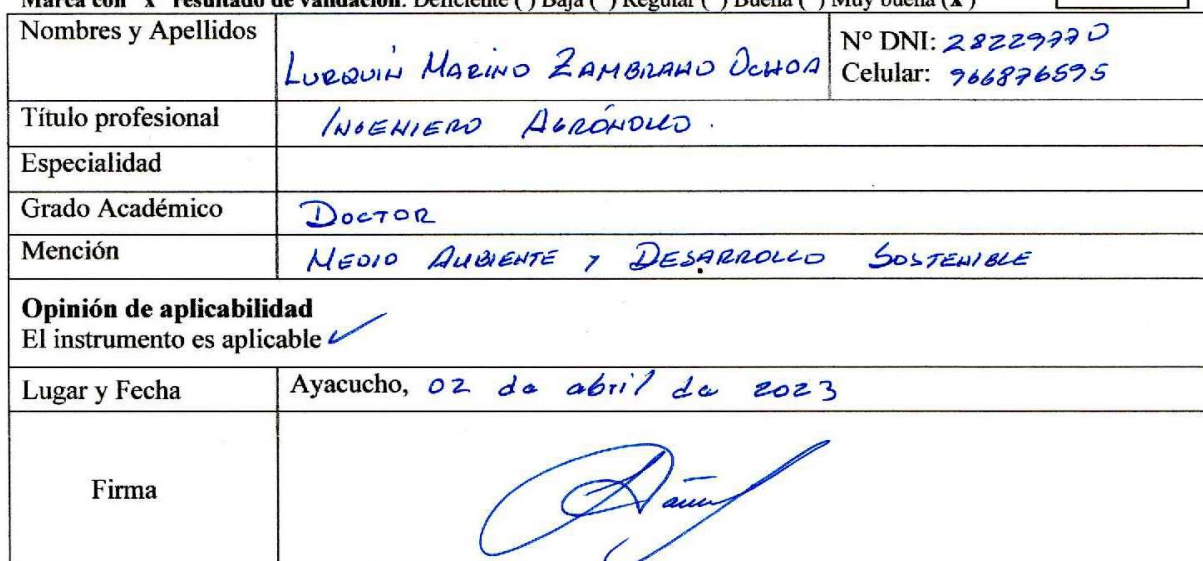 Marca con "x" resultado de validación: Deficiente ( ) Baja ( ) Regular ( ) Buena ( ) Muy buena (x)
Nombres y Apellidos
LURQUIN MARINO ZAMBRANO OCHOA
N° DNI: 28229770
Celular: 966876595
Título profesional
INGENIERO AGRÓNOMO.
Especialidad
Grado Académico
DOCTOR
Mención
MEDIO AMBIENTE Y DESARROLLO SOSTENIBLE
Opinión de aplicabilidad
El instrumento es aplicable ✓
Lugar y Fecha
Ayacucho, 02 de abril de 2023
Firma